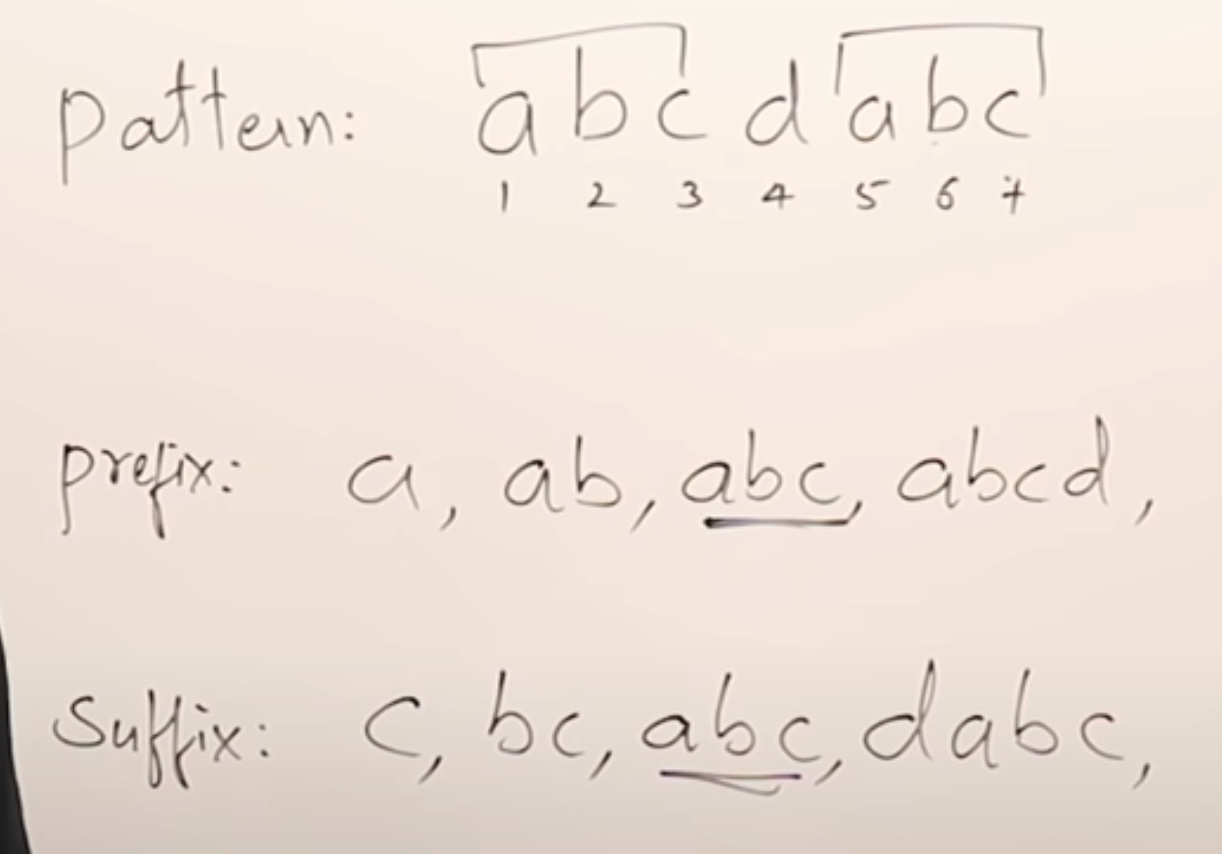 pattern: a b c d a b c
1 2 3 4 5 6 7
prefix: a, ab, abc, abcd,
Suffix: c, bc, abc, dabc,